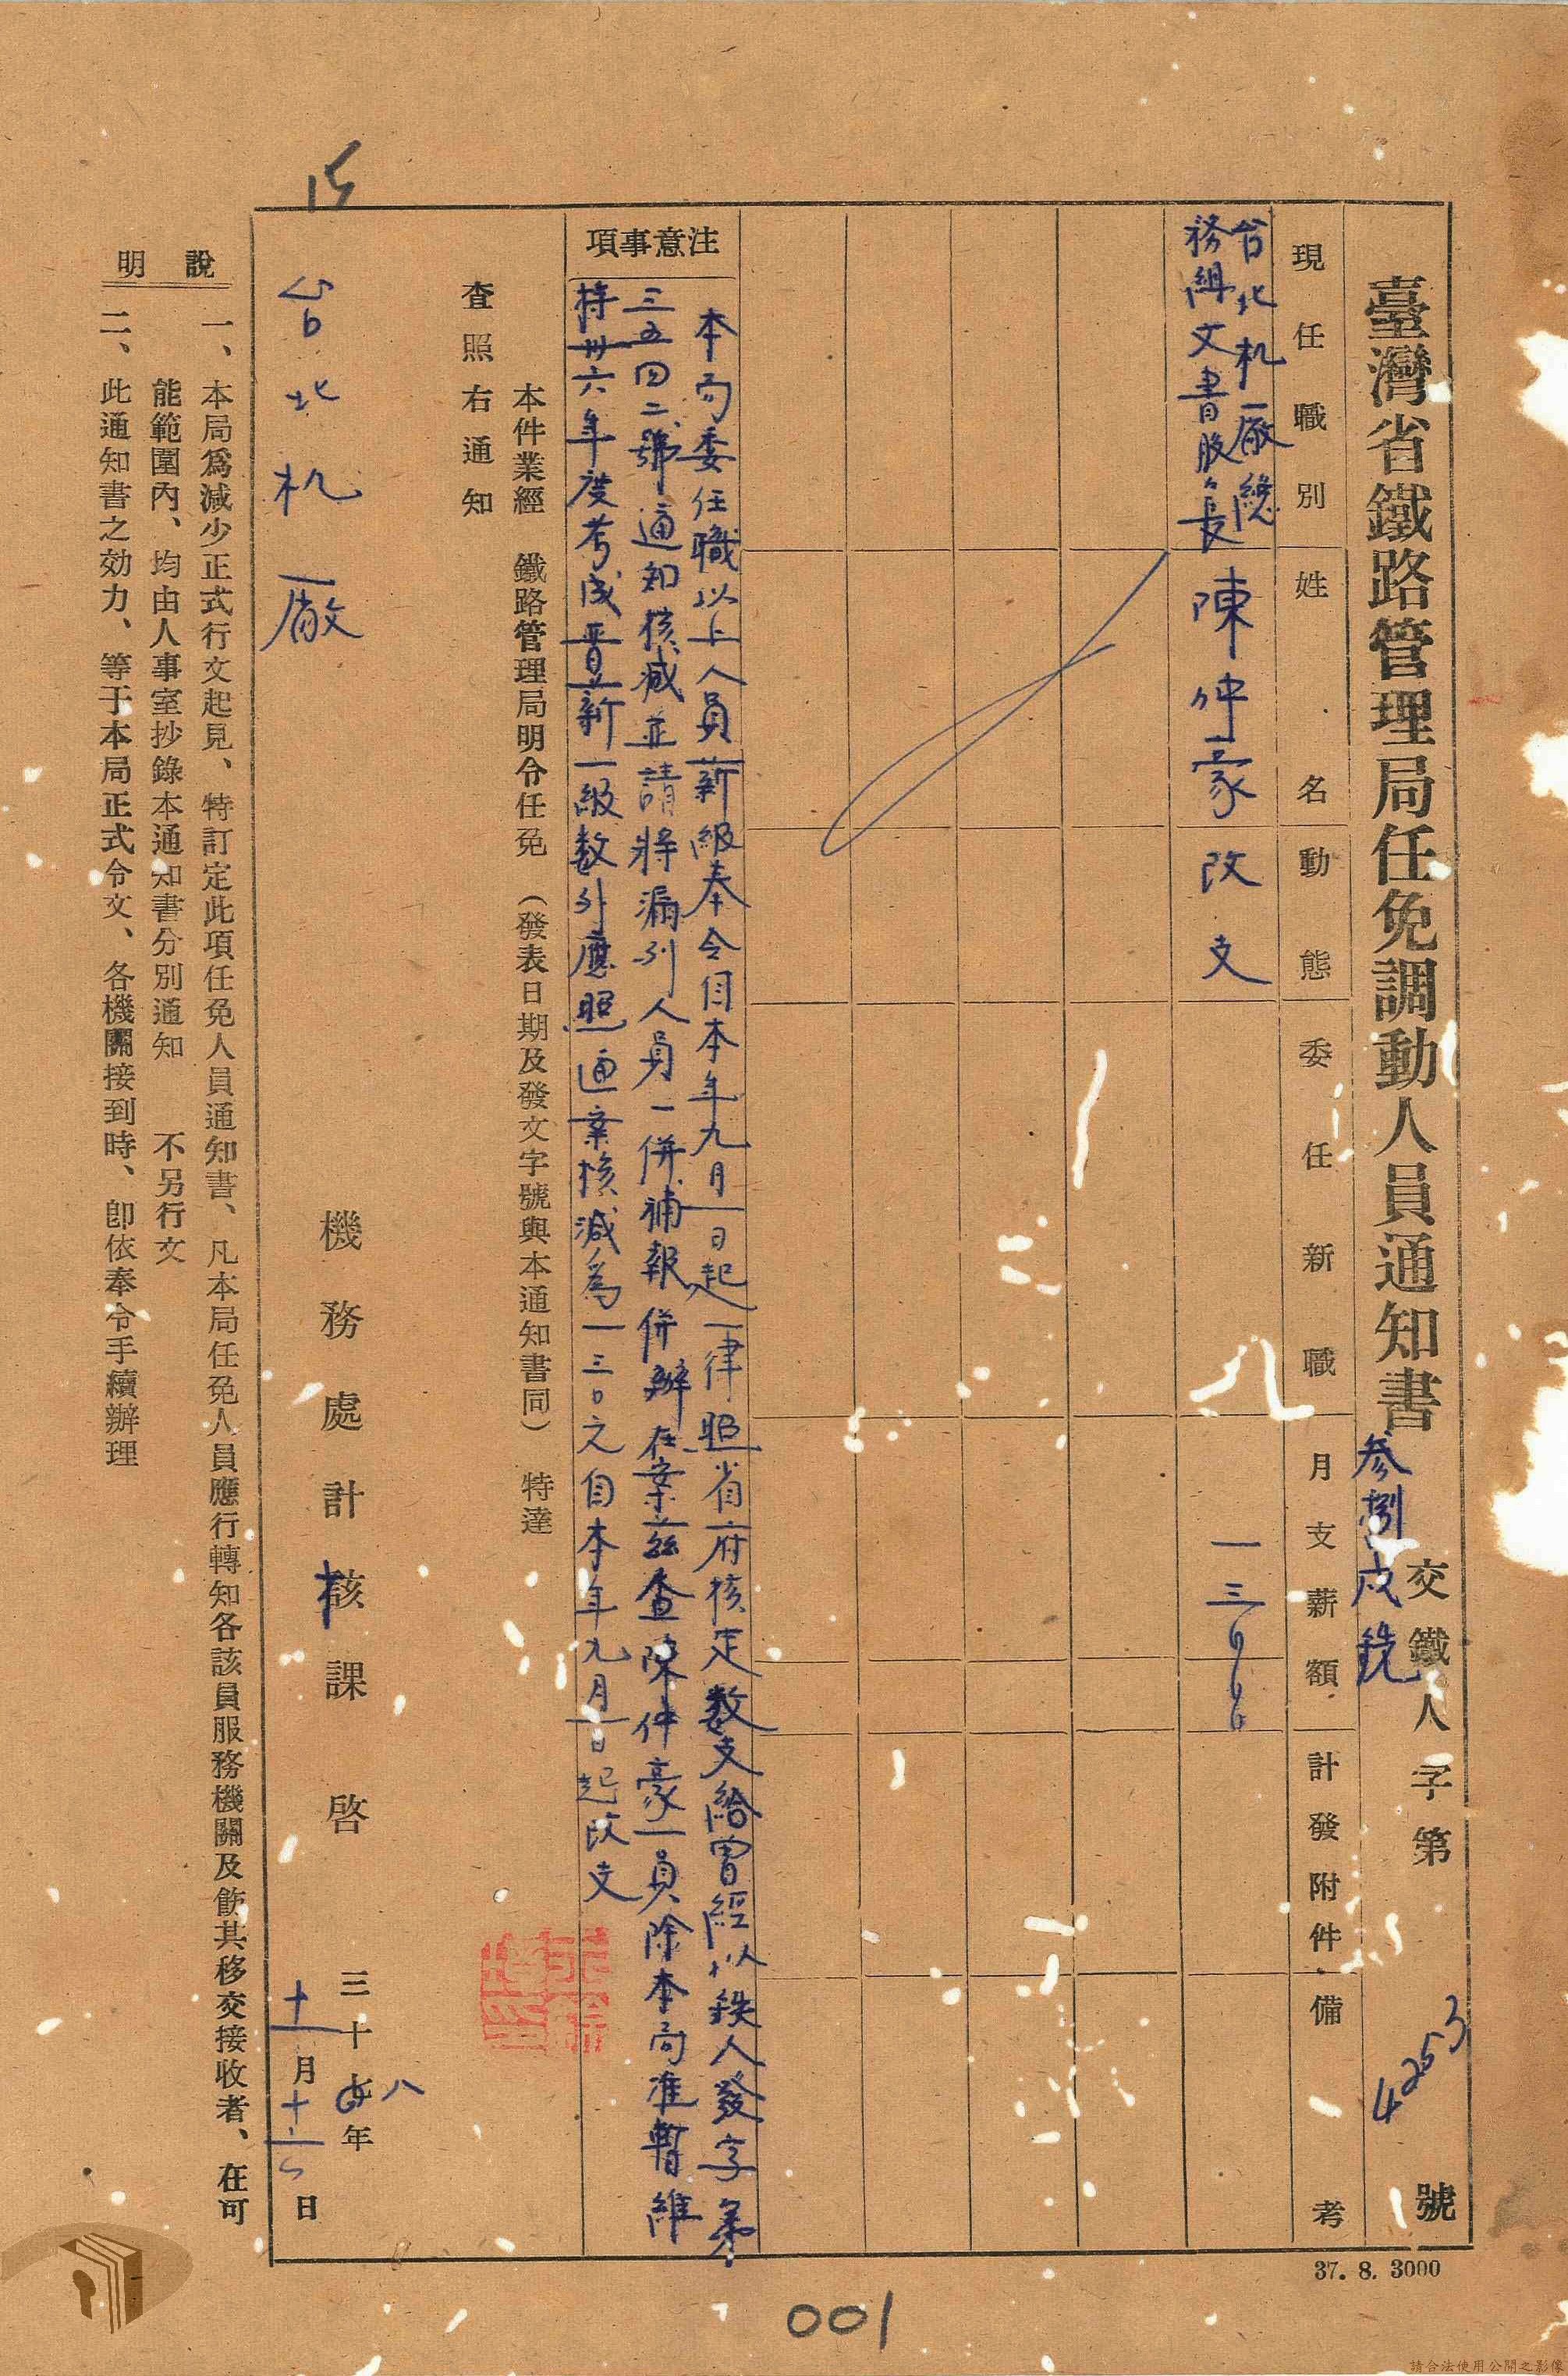 臺灣省鐵路管理局任免調動人員通知書
參捌戌銑
交鐵人字第4253號
現任職別
姓名
動態
委任新職
月支薪額
計發附件
備考
台北机廠總
務組文書股長
陳仲豪
改支
一三0.00
注意事項
本局委任職以上人員薪級奉令自本年九月一日起一律照省府核定数支給曾經以鉄人發字第
三五四二號通知核減並請將漏列人員一併補報併辦在案茲查陳仲豪一員除本局准暫維
持卅六年度考成晋薪一級数外應照通案核減為一三0元自本年九月一日起改支
本件業經 鐵路管理局明令任免 (發表日期及發文字號與本通知書同) 特達
查照右通知
台北机廠
機務處計核課啓
三十八年
十一月十六日
說明
一、本局爲減少正式行文起見、特訂定此項任免人員通知書、凡本局任免人員應行轉知各該員服務機關及飭其移交接收者、在可
能範圍內、均由人事室抄錄本通知書分別通知 不另行文
二、此通知書之効力、等于本局正式令文、各機關接到時、卽依奉令手續辦理
37. 8. 3000
15
001
請合法使用公開之影像